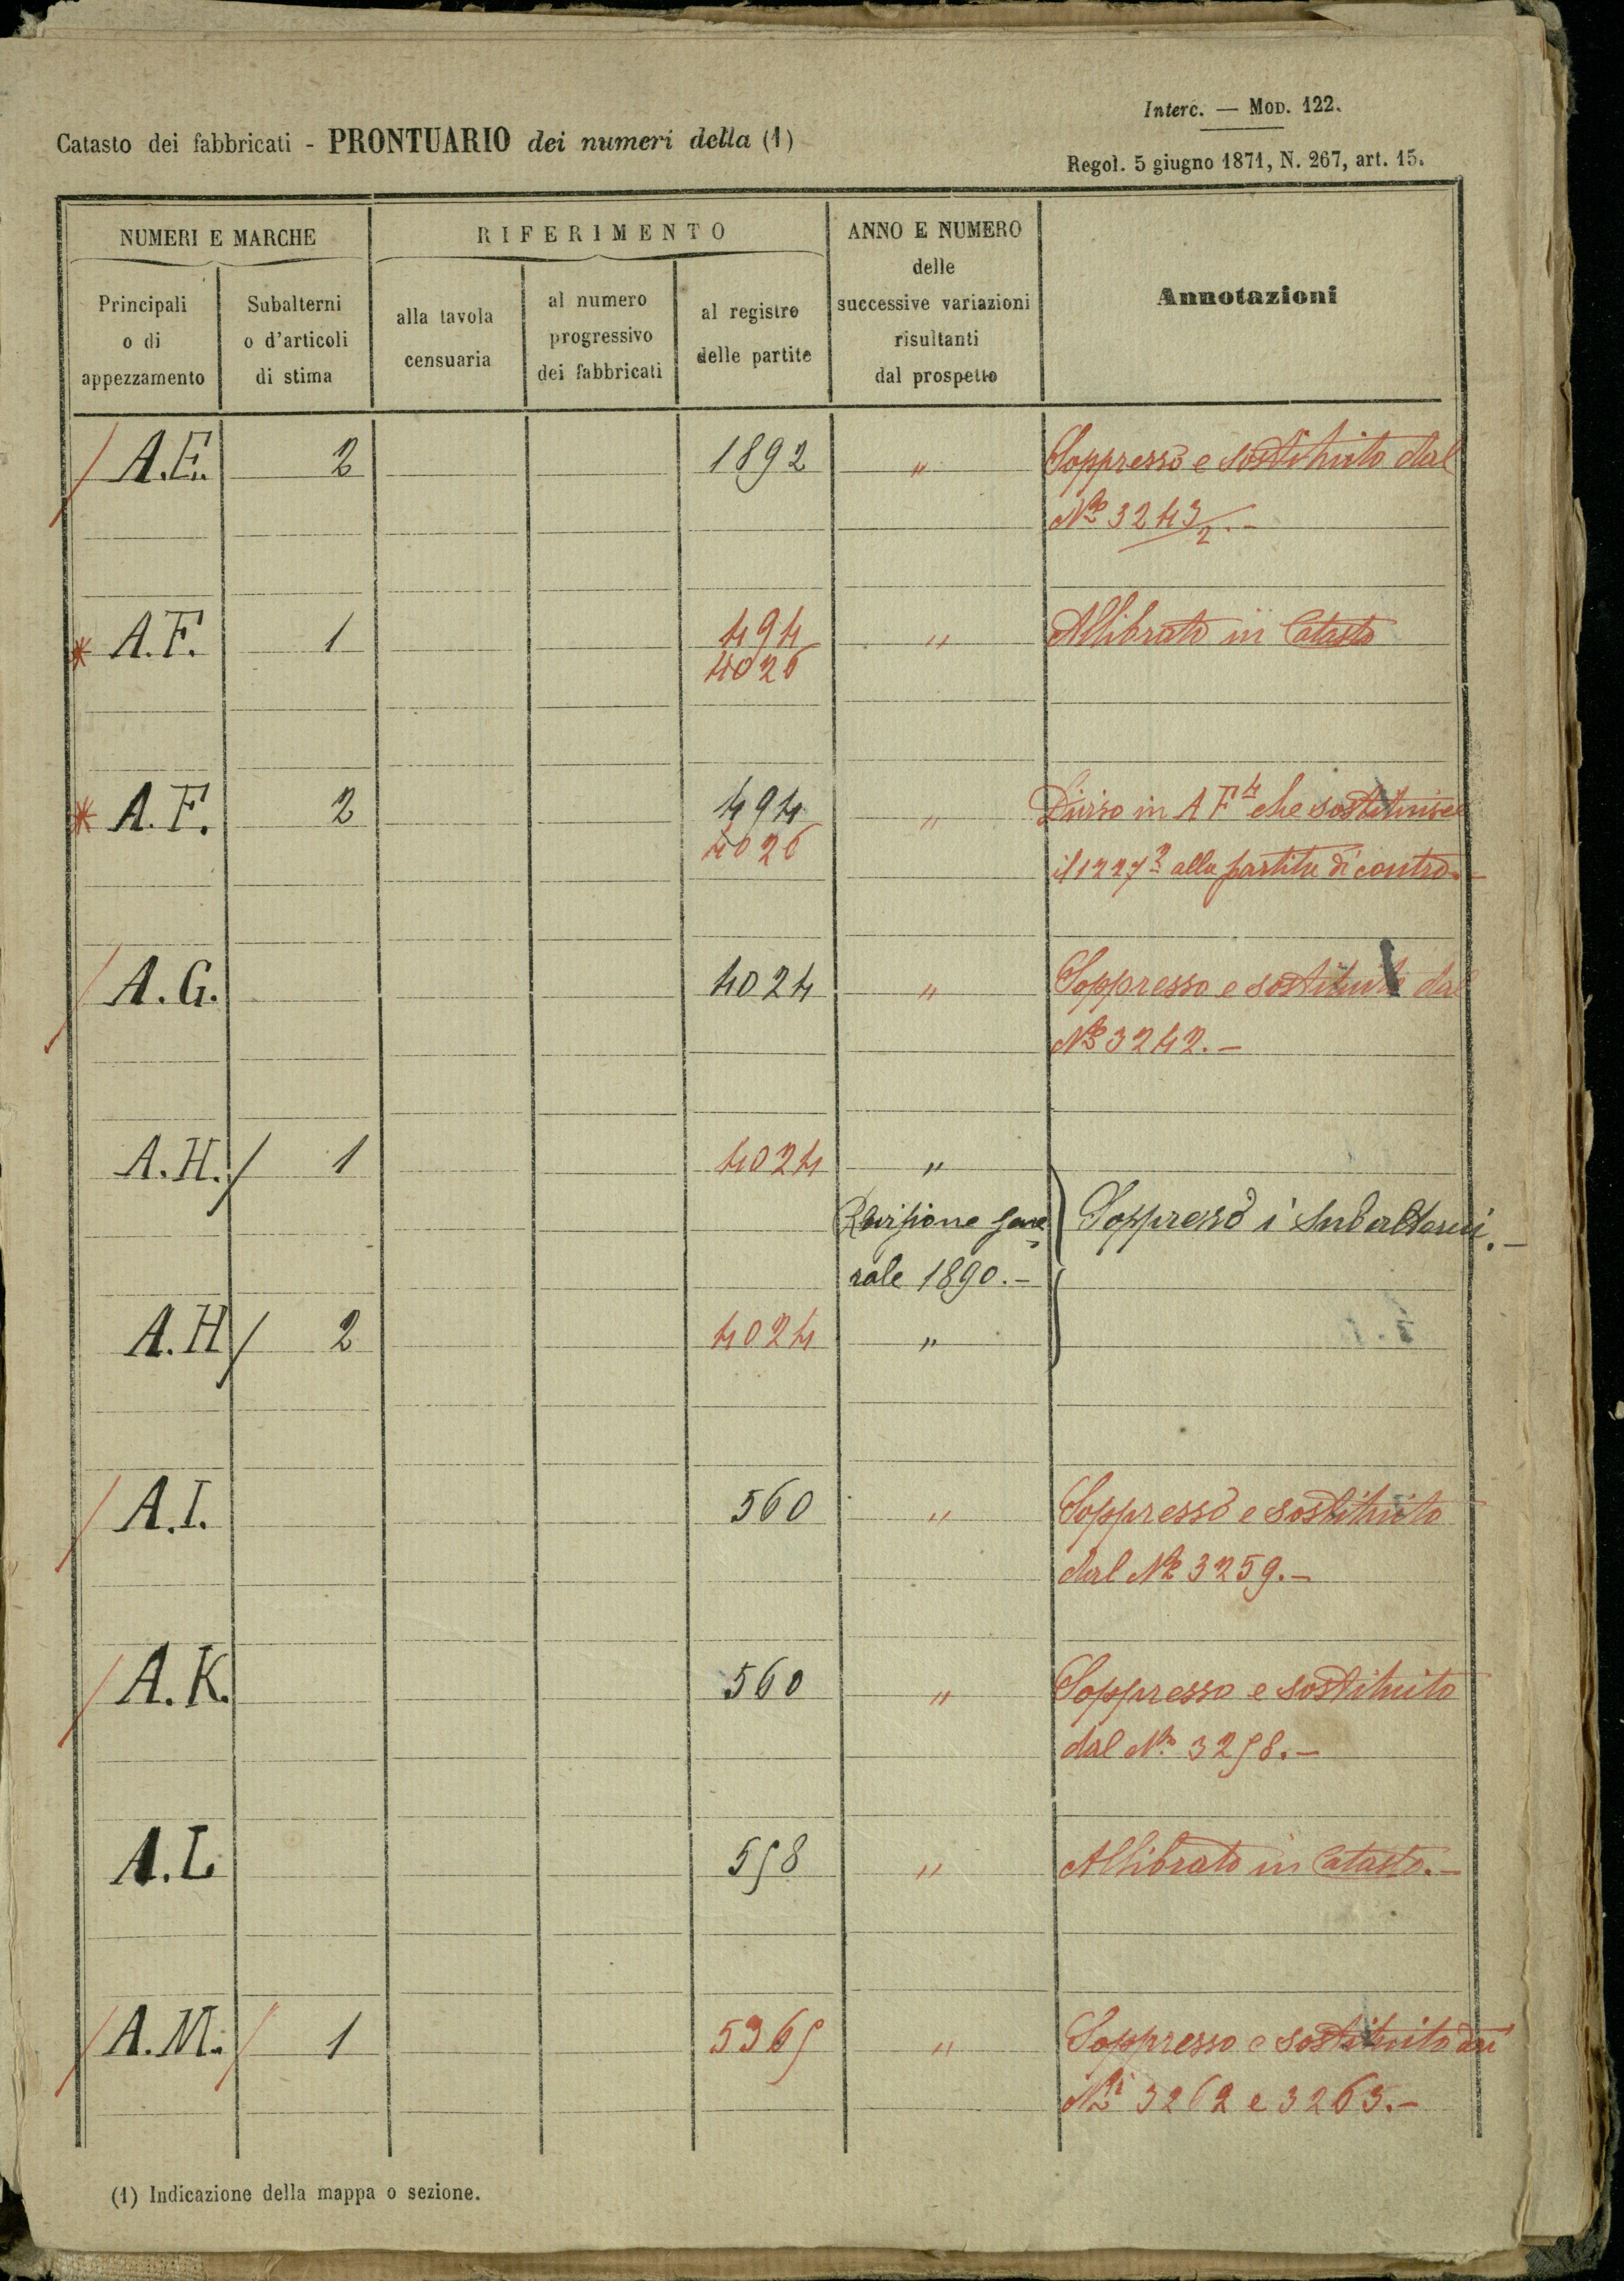 Interc. — MOD. 122.
Catasto dei fabbricati - PRONTUARIO dei numeri della (1)
Regol. 5 giugno 1871, N. 267, art. 15.
NUMERI E MARCHE
RIFERIMENTO
ANNO E NUMERO
delle
successive variazioni
risultanti
dal prospetto
Annotazioni
Principali
o di
appezzamento
Subalterni
o d'articoli
di stima
alla tavola
censuaria
al numero
progressivo
dei fabbricati
al registro
delle partite
/ A.E. 2 1892 " Soppresso e sostituito dal
No 3243/2.-
* A.F. 1 494 " Allibrato in Catasto
4026
* A.F. 2 494 " Diviso in A F 4 che sostituisce
4026
il 1227 alla partita di contro.-
/ A.G. 4024 " Soppresso e sostituito dal
No 3242.-
A.H. / 1 4024 "
Revisione gene Soppresso i subalterni.-
rale 1890.-
A.H / 2 4024 "
/ A.I. 560 " Soppresso e sostituito
dal No 3259.-
/ A.K. 560 " Soppresso e sostituito
dal No 3258.-
A.L 558 " Allibrato in Catasto.-
/ A.M. / 1 5365 " Soppresso e sostituito dai
Ni 3262 e 3263.-
(1) Indicazione della mappa o sezione.